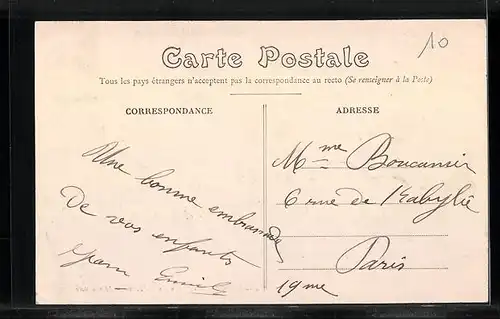 10
Carte Postale
Tous les pays étrangers n'acceptent pas la correspondance au recto (Se renseigner à la Poste)
CORRESPONDANCE
ADRESSE
Une bonne embrassade
De vos enfants
Mme
6 rue de Kabylie
Paris
19me